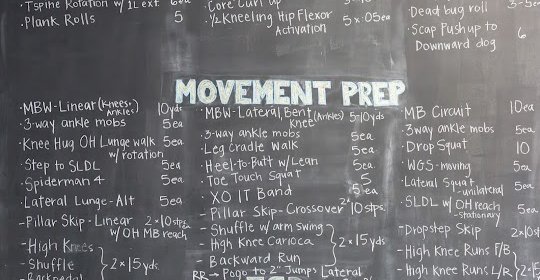 Tspine Rotation w/ 1L ext 6ea
Plank Rolls 5
Core Curl up
1/2 Kneeling Hip Flexor 5 x :05ea
Activation
Dead bug roll 3-5ea
Scap Pushup to 6
Downward dog
MOVEMENT PREP
MBW-Linear (Knees+ 10yds
Ankles)
3-way ankle mobs 5ea
Knee Hug OH Lunge walk 5ea
w/rotation
Step to SLDL 5ea
Spiderman 4 5ea
Lateral Lunge-Alt 5ea
-Pillar Skip-Linear 2x10stps
w/OH MB reach
-High Knees
-Shuffle 2x15yds.
-Backpedal
MBW-Lateral, Bent (Ankles) 5-10yds
Knee
3-way ankle mobs 5ea
Leg Cradle Walk 5ea
Heel-to-Butt w/Lean 5ea
Toe Touch Squat 5
XO IT Band 5ea
-Pillar Skip-Crossover 2x10stps.
-Shuffle w/arm swing
-High Knee Carioca 2x15yds
-Backward Run
RR→ Pogo to 2" Jumps Lateral
MB Circuit 10ea
3way ankle mobs 5ea
Drop Squat 10
WGS-moving 5ea
Lateral Squat 5ea
-unilateral
SLDL w/OH reach 5ea
-stationary
-Dropstep Skip 2x10st
-High Knee Runs F/B
-High Knee Runs L/R 2x15